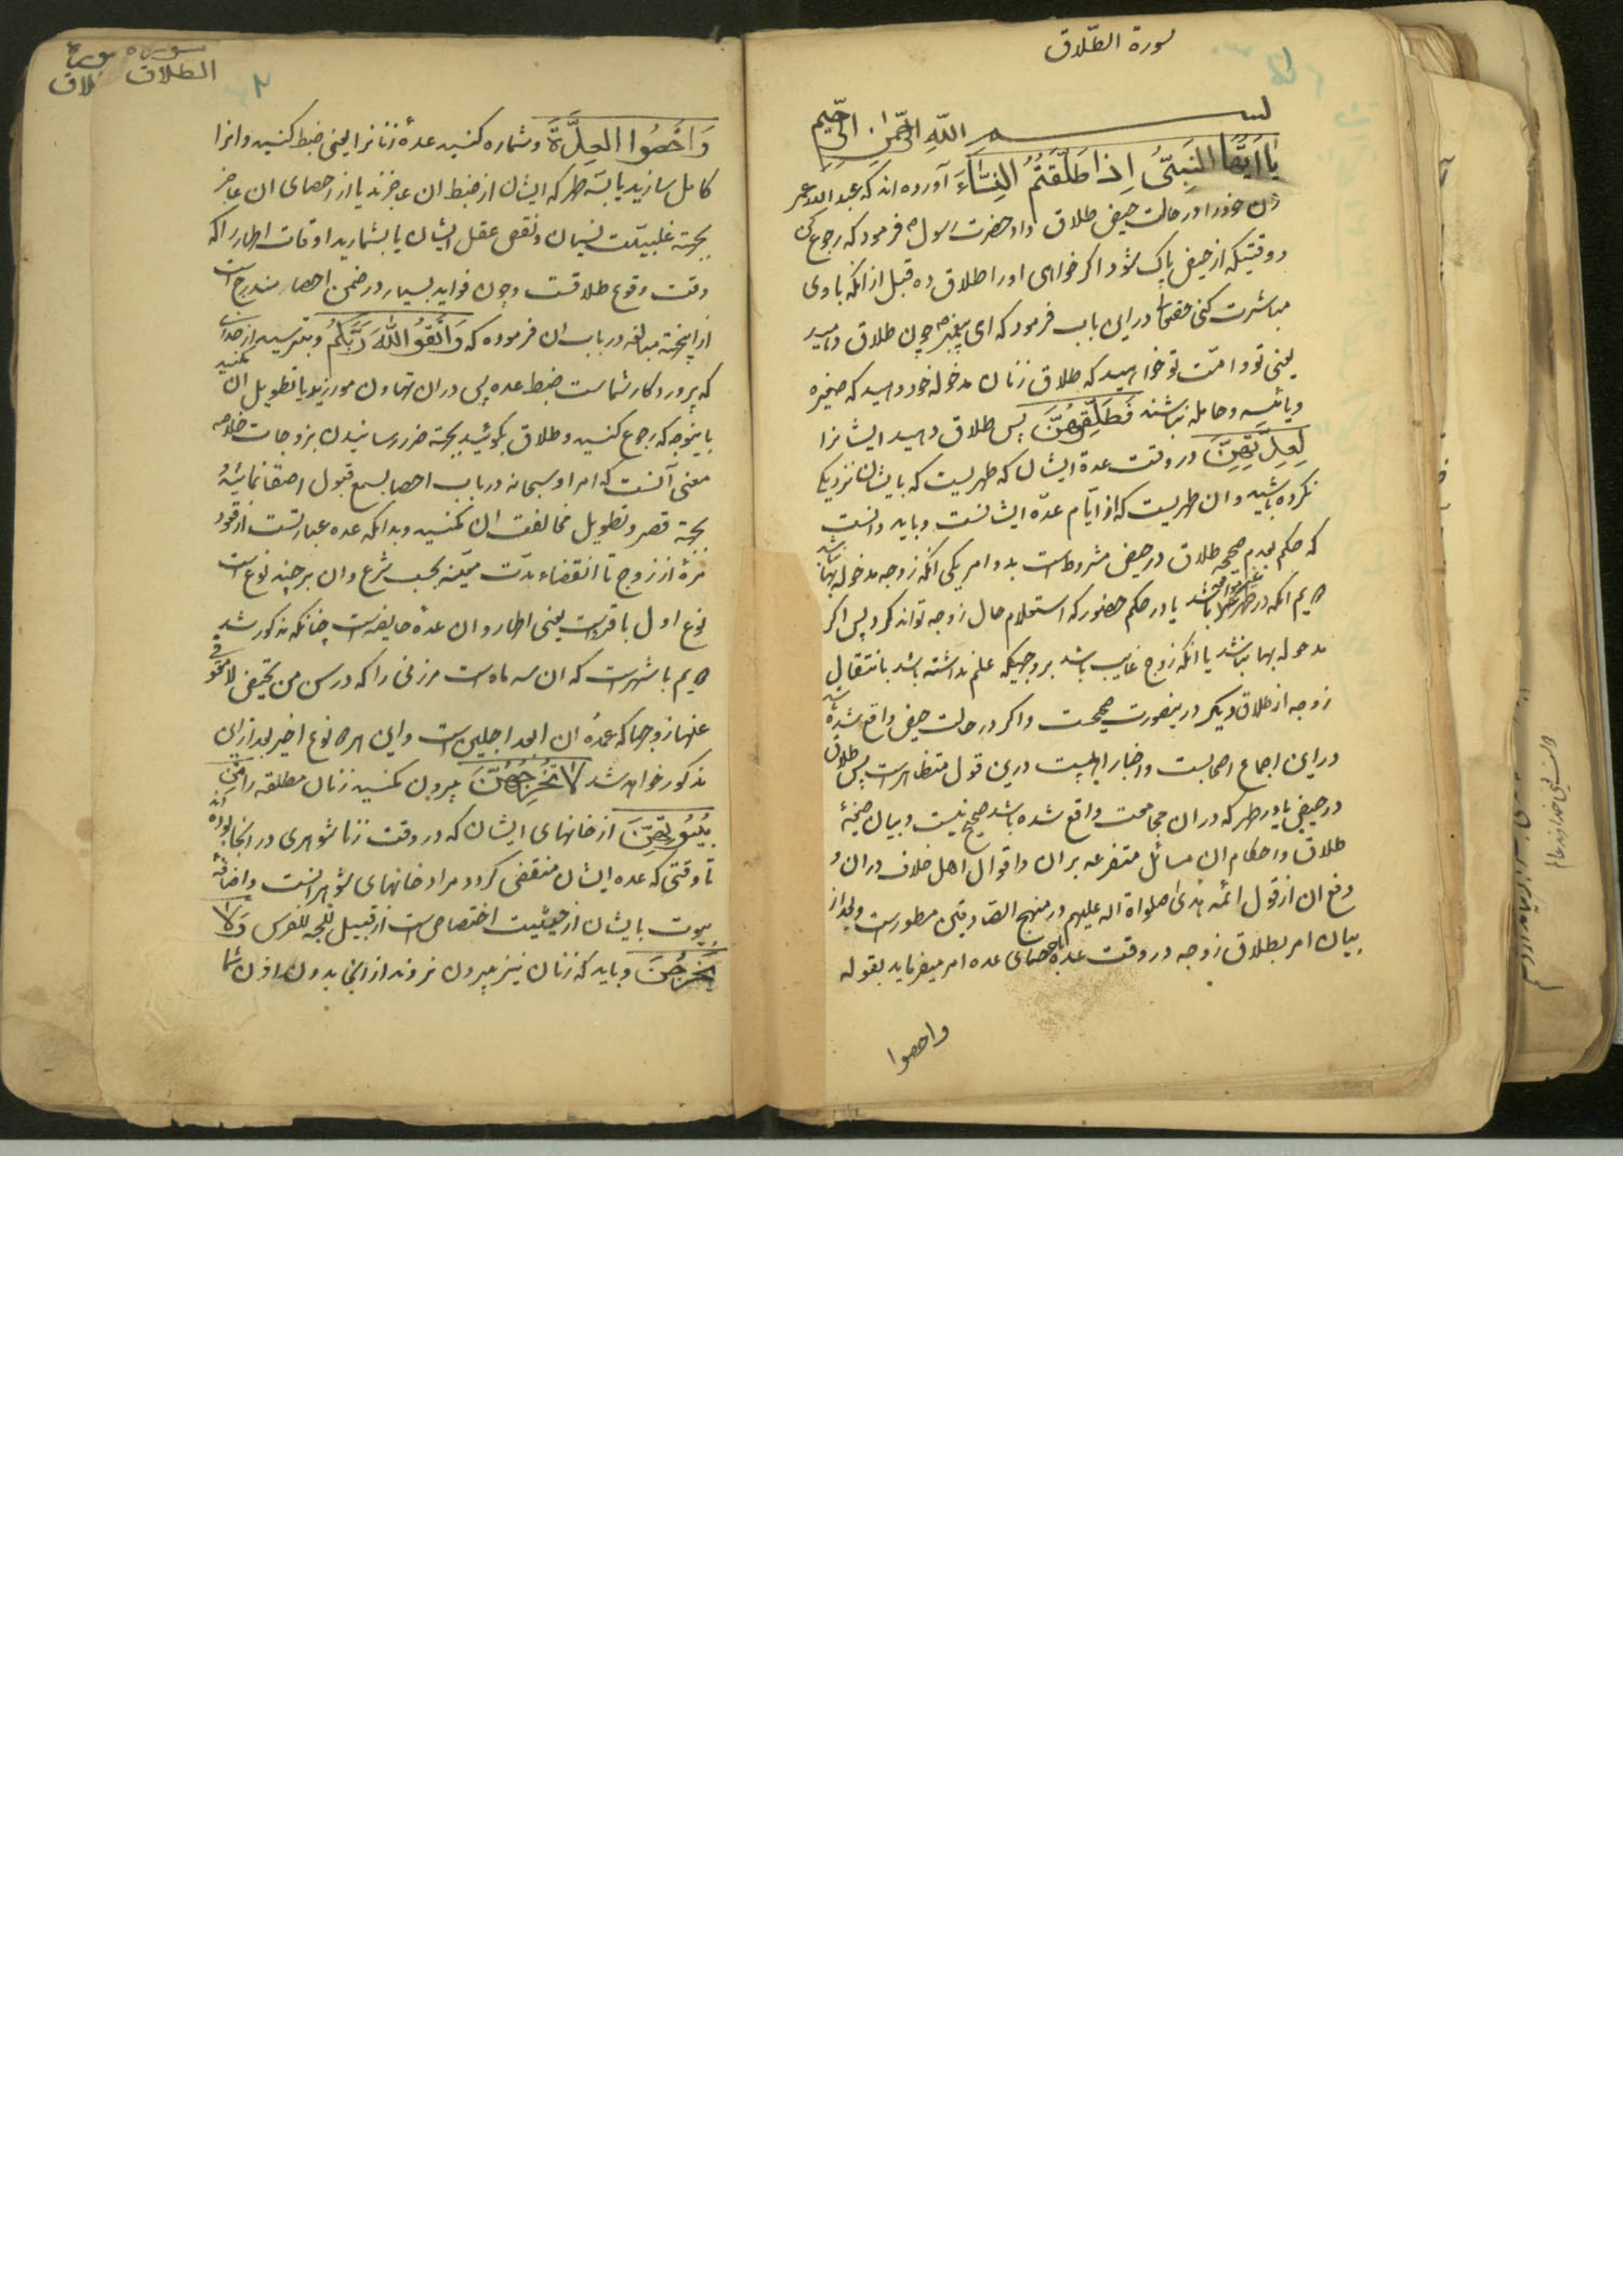 سورة الطّلاق
بسم الله الرّحمن الرّحیم
یَا اَیُّهَا النَّبِیُّ اِذا طَلَّقتُمُ النِّسَاءَ آورده اند که عبد الله عمر
زن خود را در حالت حیض طلاق داد حضرت رسول ص فرمود که رجوع کن
و وقتیکه از حیض پاک شود اکر خواهی او را طلاق ده قبل از انکه با وی
مباشرت کنی حقتعالی در این باب فرمود که ای پیغمبر چون طلاق دهید
یعنی تو و امّت تو خواهید که طلاق زنان مدخوله خود دهید که صغیره
و یائسه و حامله نباشند فَطَلِّقوهُنَّ پس طلاق دهید ایشانرا
لِعِدَّتِهِنَّ در وقت عدة ایشان که طهریست که بایشان نزدیکی
نکرده باشید و ان طهریست که از ایّام عدّه ایشانست و باید دانست
که حکم بعدم صحة طلاق در حیض مشروطست بدو امر یکی انکه زوجه مدخوله بها باشد
دویم انکه در طهر باشد یا در حکم حضور که استعلام حال زوجه تواند کرد پس اکر
مدخوله بها نباشد یا انکه زوج غایب باشد بروجهیکه علم نداشته باشد بانتقال
زوجه از طلاق دیکر درینصورت صحیحست و اکر در حالت حیض واقع شده باشد
و در این اجماع اصحابست و اخبار اهلبیت درین قول متظاهر است پس طلاق
در حیض یا در طهر که در ان مجامعت واقع شده باشد صحیح نیست و بیان صیغهٔ
طلاق و احکام ان مسائل متفرعه بران و اقوال اهل خلاف در ان و
رفع ان از قول ائمه هدی صلواة اله علیهم در منهج الصادقین مسطور است و بعد از
بیان امر بطلاق زوجه در وقت عده باحصای عده امر میفرماید بقوله
واحصوا
سوره
الطلاق
وَ اَحْصُوا العِدَّةَ و شماره کنید عدهٔ زنانرا یعنی ضبط کنید و انرا
کامل سازید بسه طهر که ایشان از ضبط ان عاجزند یا از احصای ان عاجز
بجهته غلبیّت نسیان و نقص عقل ایشان یا بشمارید اوقات اطهار را که
وقت وقوع طلاقست و چون فواید بسیار در ضمن احصار مندرج است
از اینجهته مبالغه در باب ان فرموده که وَ اتَّقُو اللّٰهَ رَبَّکُمْ و بترسید از خدای
که پروردکار شماست ضبط عده پس در ان تهاون مورزید یا تطویل ان نکنید
باینوجه که رجوع کنید و طلاق بکوئید بجهته ضرر رسانیدن بزوجات خلاصه
معنی آنست که امر او سبحانه در باب احصا بسمع قبول اصغا نمائید و
بجهة قصر و تطویل مخالفت ان نکنید و بدانکه عده عبارتست از قعود
مرهٔ از زوج تا انقضاء مدّت معیّنه بحسب شرع و ان بر چند نوع است
نوع اول باقراست یعنی اطهار و ان عدهٔ حایضه است چنانکه مذکور شد
دویم باشهرست که ان سه ماه است مر زنی را که در سن من تحیض لا
عنها زوجها که عمدهٔ ان ابعد اجلین است و این هر دو نوع اخیر بعد از این
مذکور خواهد شد لا تُخْرِجُوهُنَّ بیرون مکنید زنان مطلقه را مِنْ
بُیُوتِهِنَّ از خانهای ایشان که در وقت زناشوهری در انجا بوده اند
تا وقتی که عده ایشان منقضی کردد مراد خانهای شوهرانست و اضافهٔ
بیوت بایشان از حیثیت اختصاص است از قبیل ثلجه للفرس وَلا
یَخْرُجْنَ و باید که زنان نیز بیرون نروند از انجا بدون اذن شما